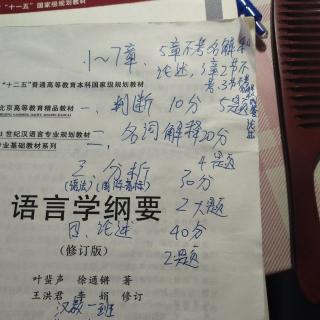 "十一五"国家级规划教材
1~7章、5章不考名解和
论述，3章2节不
考、3节不考
"十二五"普通高等教育本科国家级规划教材
北京高等教育精品教材
一、判断 10分 5题
世纪汉语言专业规划教材
二、名词解释20分
专业基础教材系列
4题
三、分析 30分
(语法)
2大题
语言学纲要
四、论述 40分
(修订版)
2题
叶蜚声 徐通锵 著
王洪君 李娟 修订
汉教一班